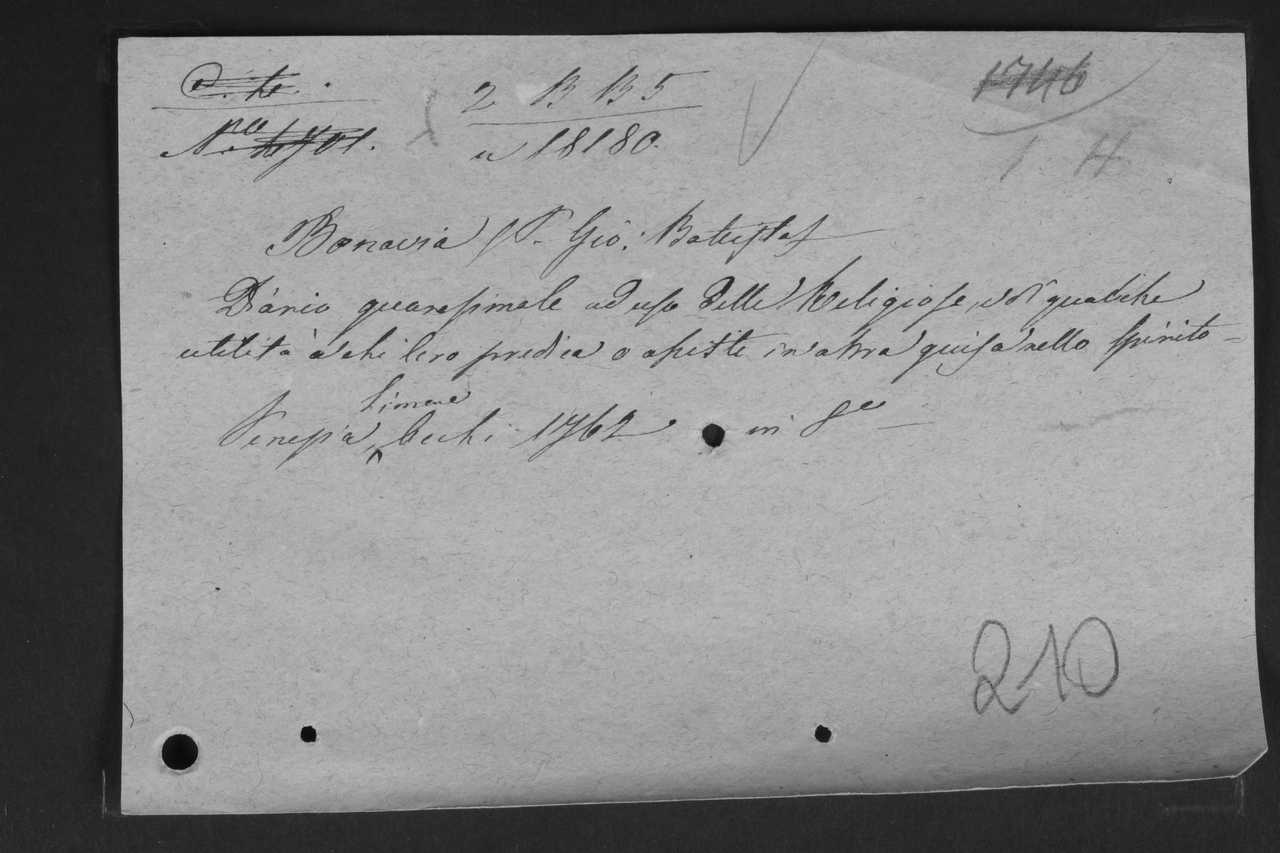 2 B B 5
1746
No 4701.
a 18180.
1 H
Bonavia (P. Gio: Battista)
Diario quaresimale ad uso delle Religiose, e di qualche
utilità a chi loro predica o assiste in altra guisa nello Spirito =
Simone
Venezia, Occhi 1762 in 8o
210